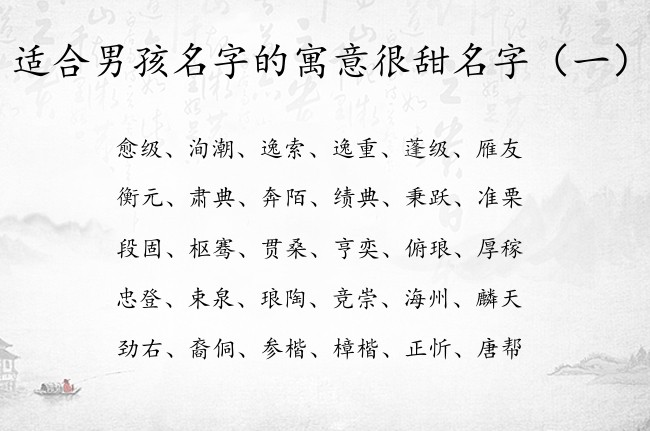 适合男孩名字的寓意很甜名字（一）
愈级、洵潮、逸索、逸重、蓬级、雁友
衡元、肃典、奔陌、绩典、秉跃、准栗
段固、枢骞、贯桑、亨奕、俯琅、厚稼
忠登、束泉、琅陶、竞崇、海州、麟天
劲右、裔侗、参楷、樟楷、正忻、唐帮